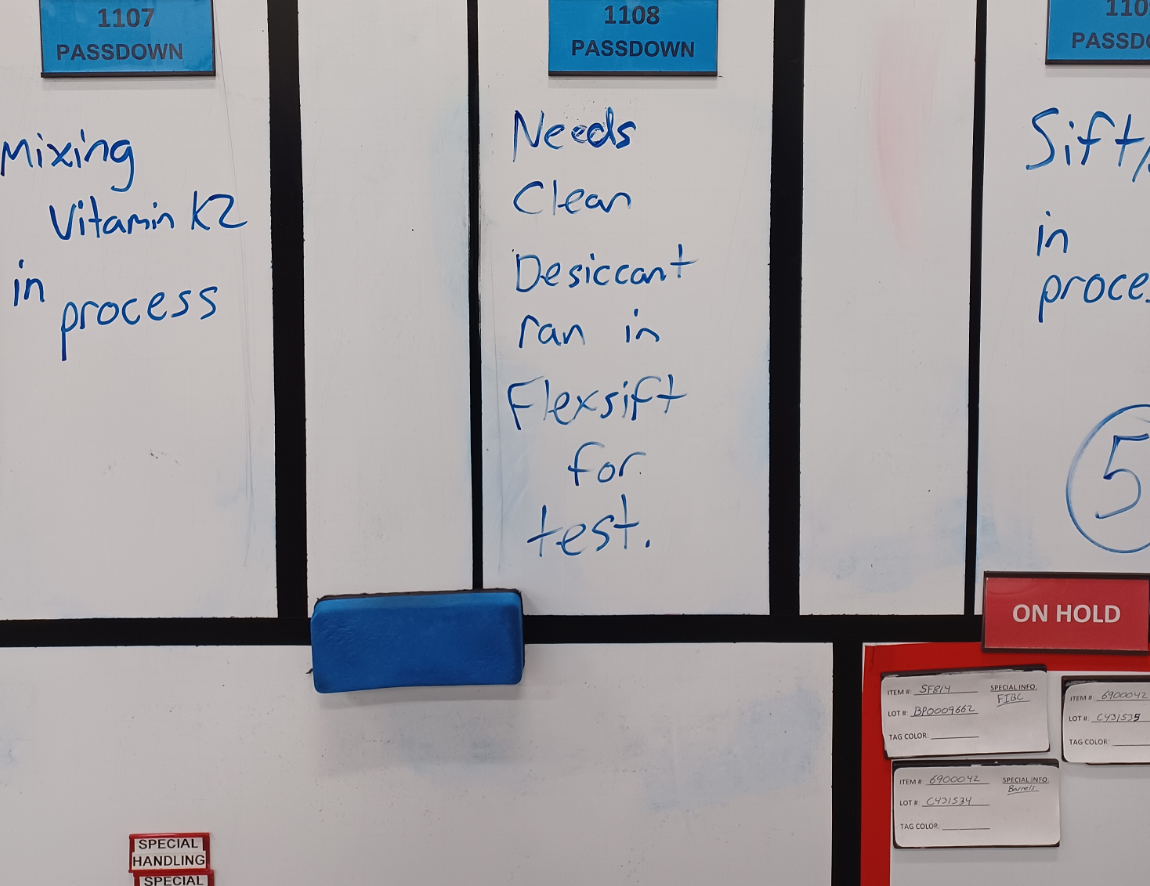 1107
PASSDOWN
Mixing
Vitamin K2
in
process
1108
PASSDOWN
Needs
Clean
Desiccant
ran in
Flexsift
for
test.
in
5
ON HOLD
ITEM #: SF814
SPECIAL INFO.
FIBC
LOT #: BP0009662
TAG COLOR:
ITEM #: 6900042
LOT #: C431535
TAG COLOR:
ITEM # 6900042
SPECIAL INFO.
Barrels
LOT #: C431534
TAG COLOR:
SPECIAL
HANDLING
SPECIAL